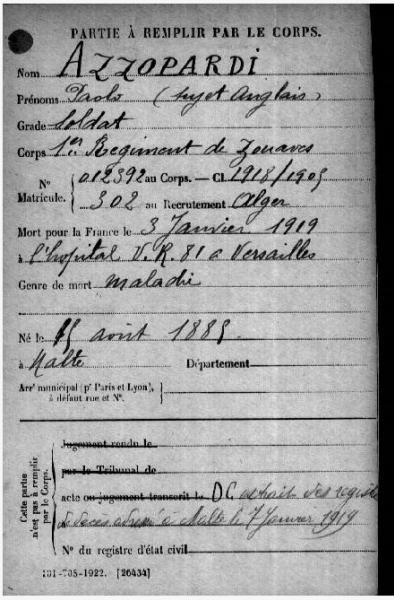 PARTIE À REMPLIR PAR LE CORPS.
Nom AZZOPARDI
Prénoms Paolo (sujet Anglais)
Grade Soldat
Corps 1er Régiment de Zouaves
N° Matricule. 012392 au Corps. — Cl. 1918/1905
302 au Recrutement Alger
Mort pour la France le 3 Janvier 1919
à l'hopital V. R. 81 a Versailles
Genre de mort maladie
Né le août 1885
à Malte Département
Arrt municipal (pr Paris et Lyon),
à défaut rue et N°.
Cette partie n'est pas à remplir par le Corps.
Jugement rendu le
par le Tribunal de
acte ou jugement transcrit le DC extrait des registres
de deces adressé à Malte le 7 Janvier 1919
N° du registre d'état civil
101-708-1922. [26434]